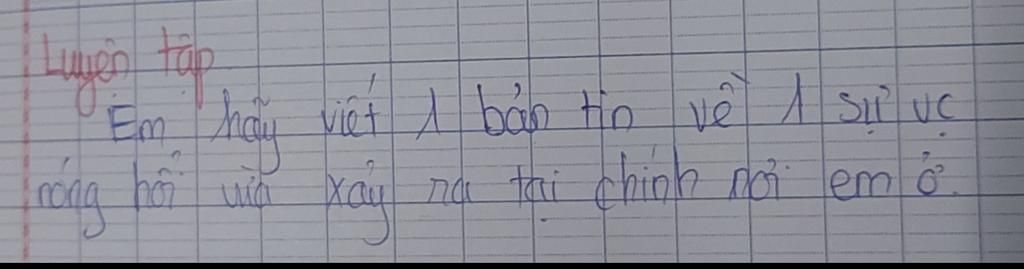 Luyện tập
Em hãy viết 1 bản tin về 1 sự vc
nóng hổi vừa xảy ra tại chính nơi em ở.